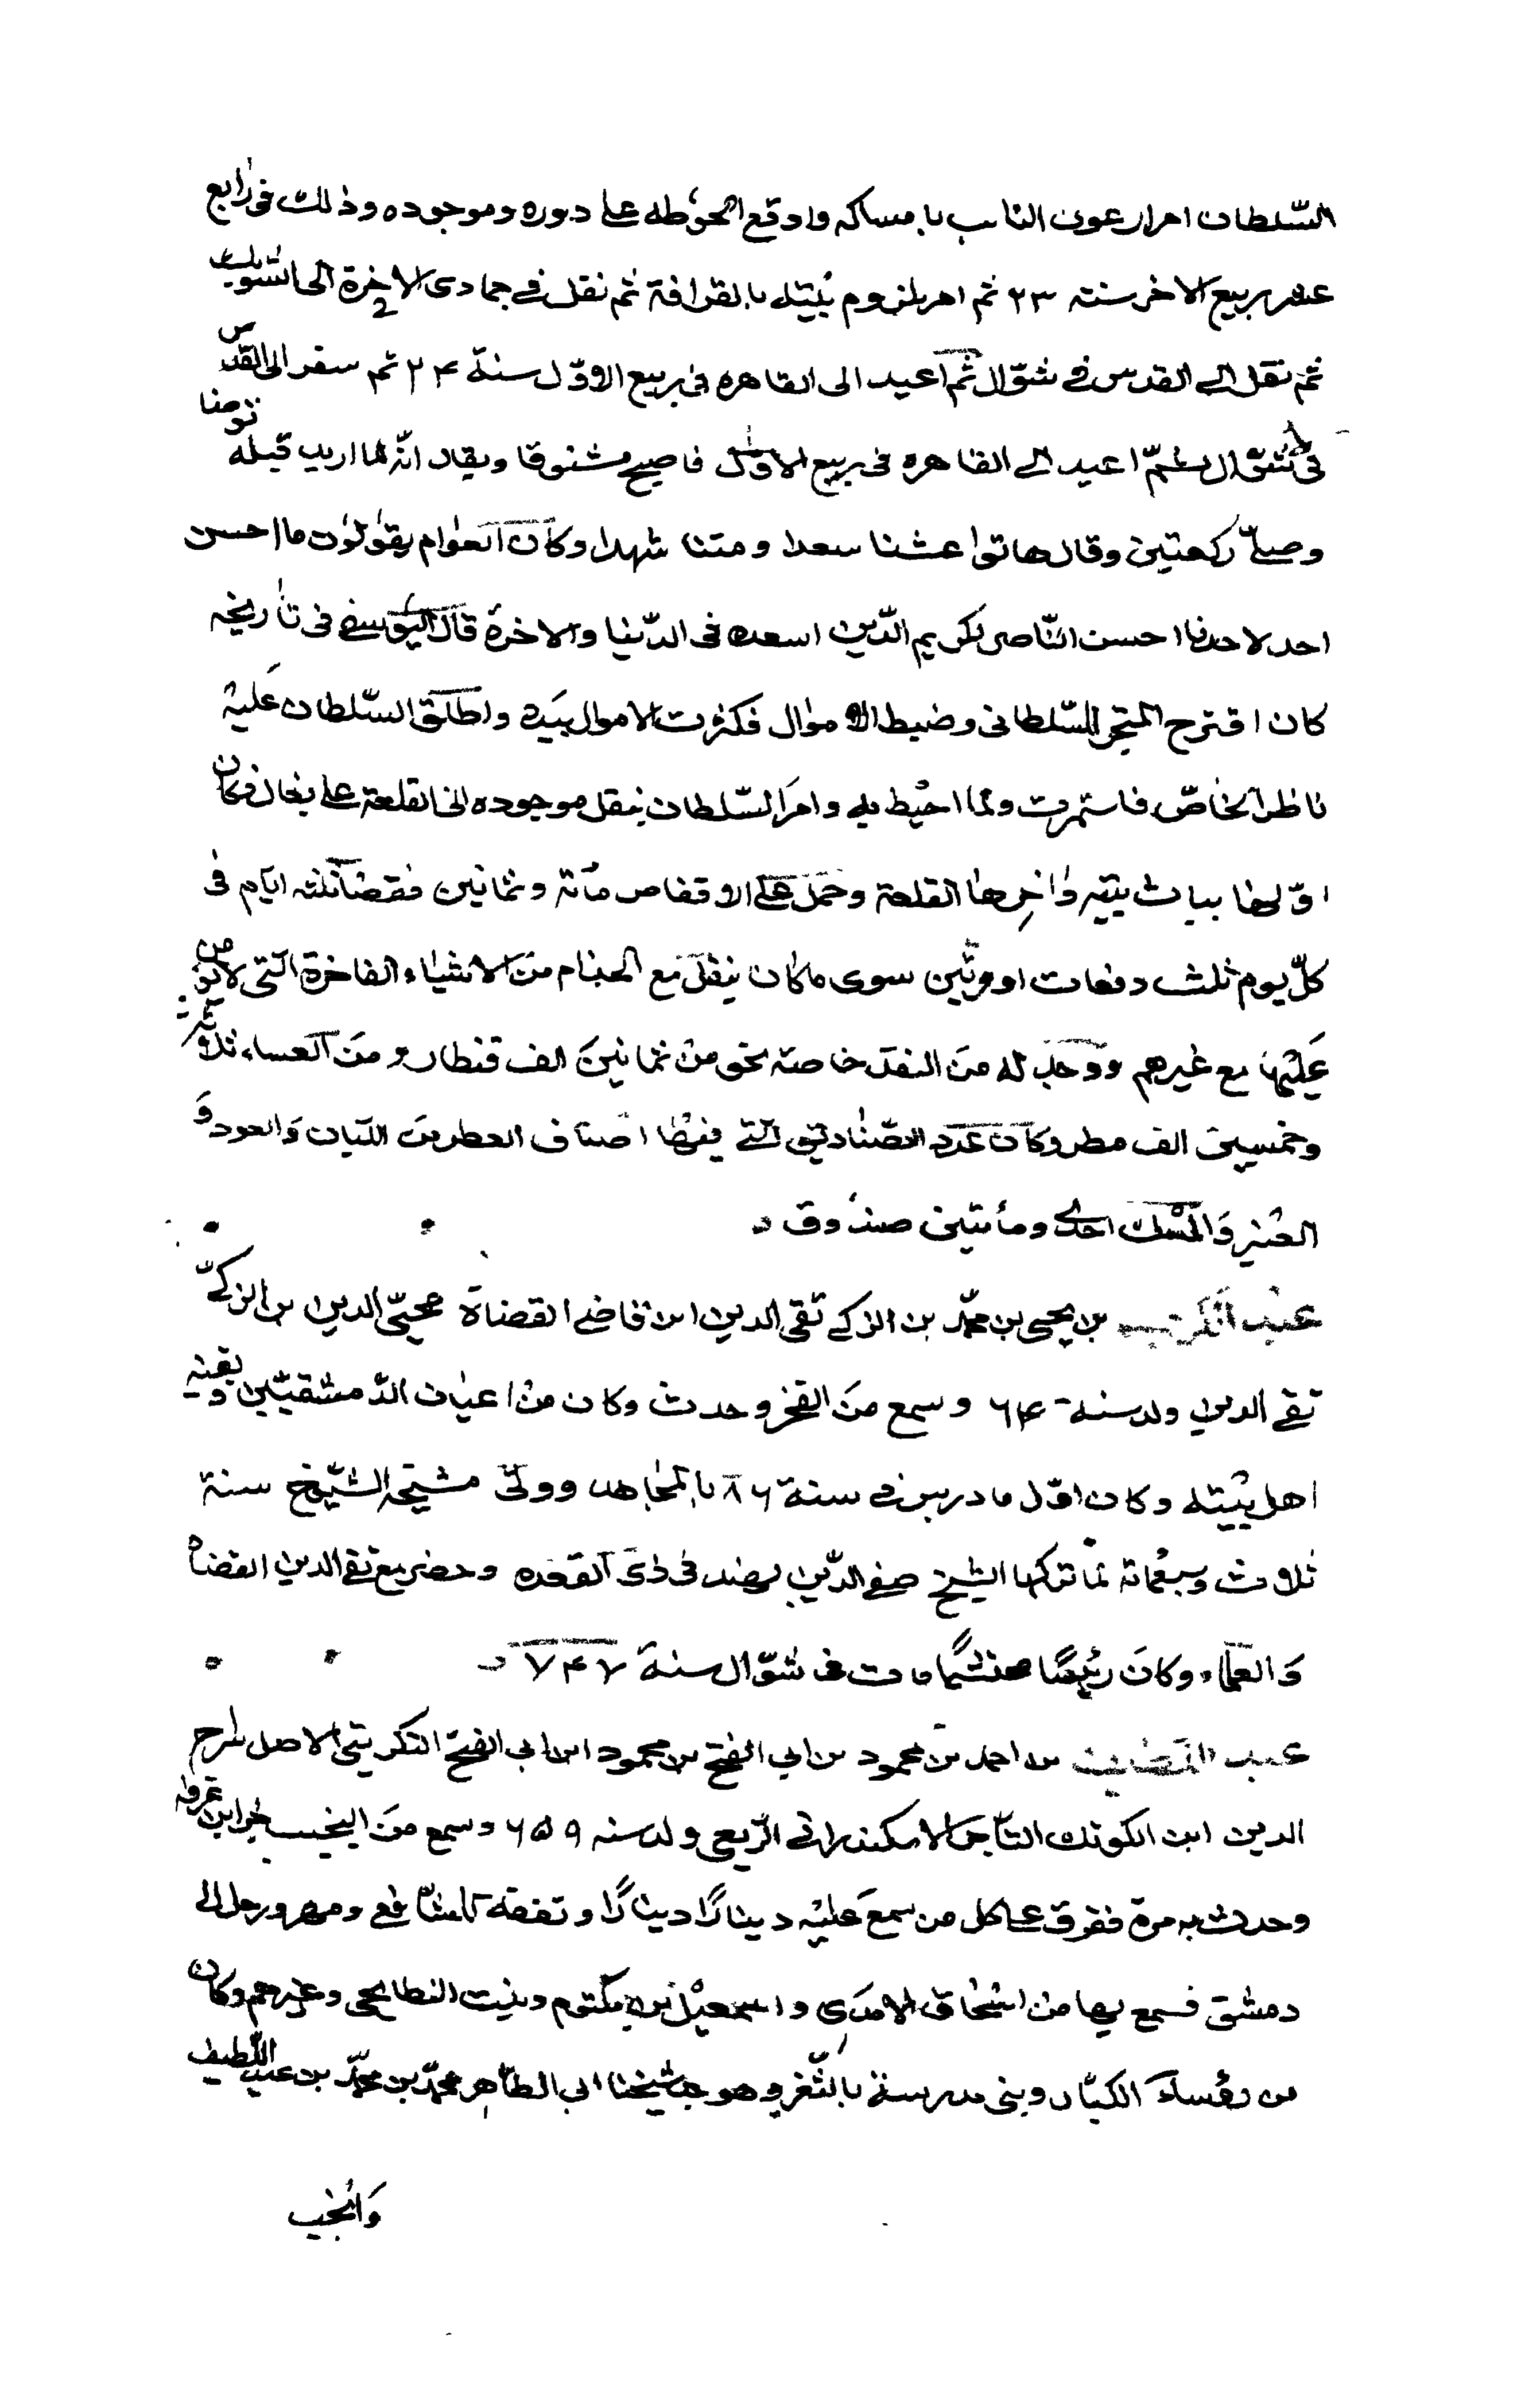 السّلطان امر ارعون النائب بامساكه واوقع الحوطه على دوره وموجوده وذلك فى رابع
عشر ربيع الاخر سنته ٢٣ ثم امر بلزوم بيته بالقرافة ثم نقل فى جمادى الاخرة الى الشوبك
ثم نقل الى القدس فى شوّال ثم اعيد الى القاهره فى ربيع الاوّل سنة ٢۴ ثم سفر الى القدس
فى شوّال ثمّ اعيد الى القاهره فى ربيع الاوّل فاصبح مشنوقا ويقال انّه لما اريد قتله توضا
وصلّى ركعتين وقال هاتوا عشنا سعدا ومتنا شهدا وكان العوام يقولون ما احسن
احد لاحد ما احسن النّاصر لكريم الدّين اسعده فى الدّنيا والاخرة قال اليوسفى فى تاريخه
كان اقترح المتجر السّلطانى وضبط الاموال فكثرت الاموال بيده واطلق السّلطان عليه
ناظر الخاصّ فاستمرت ولما احيط به وامر السّلطان بنقل موجوده الى القلعة على بغال وكان
اوّلها بباب بيته واخرها القلعة وحمل على الاقفاص مائة وثمانين قفصا ثلثه ايّام فى
كلّ يوم ثلث دفعات او مرتين سوى ما كان ينقل مع الخدام من الاشياء الفاخرة الّتى لا يؤمن
عليها مع غيرهم ووجد له من النقد خاصته نحو من ثمانين الف قنطار ومن العسل ثلاثة
وخمسين الف مطر وكان عدد الصّناديق التى فيها اصناف العطر من اللبان والعود و
العنبر والمسك احدى ومأتين صندوق
عبد الكريم بن يحيى بن محمّد بن الزكى تقى الدين ابن قاضى القضاة محيى الدين بن الزكىّ
تقى الدين ولد سنة ٦۴ وسمع من الفخر وحدث وكان من اعيان الدّمشقيّين وبقية
اهل بيته وكان اوّل ما درس فى سنة ٨٦ بالمجاهد وولى مشيخة الشّيوخ سنة
ثلاث وسبعمائة لما تركها الشيخ صفى الدّين الهند فى ذى القعده وحضر مع تقى الدين القضاة
والعلماء وكان رئيسًا محتشمًا مات فى شوّال سنة ٧۴٧
عبد اللطيف بن احمد بن محمود بن ابى الفتح بن محمود ابن ابى الفتح التكريتى الاصل سراج
الدين ابن الكويك التّاجر الاسكندرانى الرّبعى ولد سنه ٦۵٩ وسمع من النجيب وابن عروه
وحدث به مرة ففرق على كل من سمع عليه دينارًا دينارًا وتفقه للشافعى ومهر ورحل الى
دمشق فسمع بها من اسحاق الامدى واسمعيل بن مكتوم وبنت البطايحى وغيرهم وكان
من رؤساء الكبار وبنى مدرسة بالثّغر وهو جد شيخنا ابى الطّاهر محمّد بن محمّد بن عبد اللّطيف
وانجب